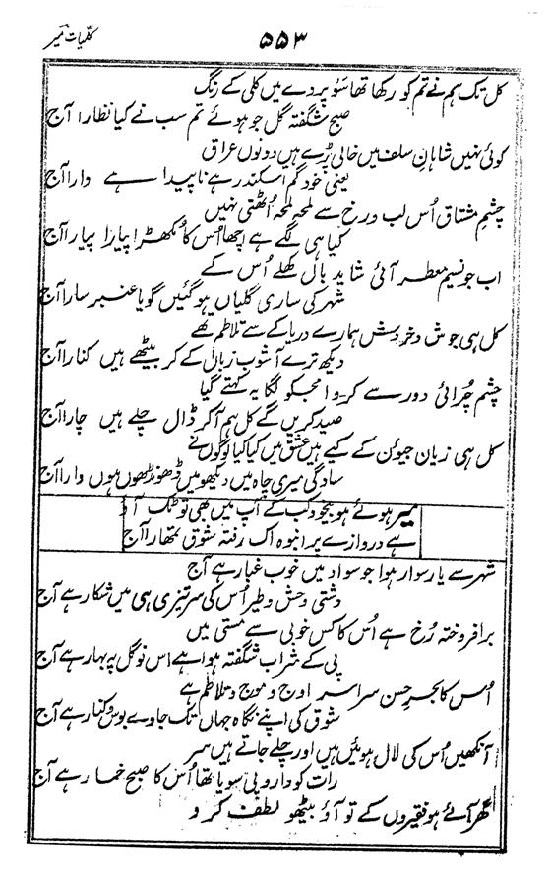 کلیات میر
۵۵۳
کل تک ہم نے تم کو رکھا تھا سَو پردے میں کلی کے رنگ
صبح شگفتہ گل جو ہوئے تم سب نے کیا نظارا آج
کوئی نہیں شاہانِ سلف میں خالی پڑے ہیں دونوں عراق
یعنی خود گم اسکندر ہے ناپیدا ہے دارا آج
چشمِ مشتاق اُس لب و رخ سے لمحہ لمحہ اُٹھتی نہیں
کیا ہی لگے ہے اچھا اُس کا مُکھڑا پیارا پیارا آج
اب جو نسیم معطر آئی شاید بال کھلے اُس کے
شہر کی ساری گلیاں ہو گئیں گویا عنبر سارا آج
کل ہی جوش و خروش ہمارے دریا کے سے تلاطم تھے
دیکھ ترے آشوب زباں کے کر بیٹھے ہیں کنارا آج
چشم چُرائی دور سے کر وا مجکو لگا یہ کہتے گیا
صید کریں گے کل ہم آ کر ڈال چلے ہیں چارا آج
کل ہی زیان جیوں کے کیے ہیں عشق میں کیا کیا لوگوں نے
سادگی میری چاہ میں دیکھو میں ڈھونڈھوں ہوں دارا آج
میر ہوئے ہو بیخود کب کے آپ میں بھی تو ٹک آؤ
ہے دروازے پر انبوہ اک رفتۂ شوق تمھارا آج
شہر سے یار سوار ہوا جو سواد میں خوب غبار ہے آج
دشتی وحش و طیر اُس کی سر تیزی ہی میں شکار ہے آج
برافروختہ رُخ ہے اُس کا کس خوبی سے مستی میں
پی کے شراب شگفتہ ہوا ہے اس نو گل پہ بہار ہے آج
اُس کا بحرِ حسن سراسر اوج و موج و تلاطم ہے
شوق کی اپنے نگاہ جہاں تک جاوے بوس و کنار ہے آج
آنکھیں اُس کی لال ہوئیں ہیں اور چلے جاتے ہیں سر
رات کو دارو پی سویا تھا اُس کا صبح خمار ہے آج
گھر آئے ہو فقیروں کے تو آؤ بیٹھو لطف کرو